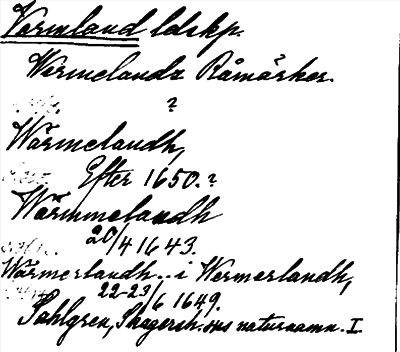 Värmland ldskp.
Wermelandz Råmärker.
?
Wärmelandh,
Efter 1650.?
Wärmmelandh
20/4 1643.
Wärmerlandh.. i Wermerlandh,
22-23/6 1649.
Sahlgren, Skagersh. sns naturnamn. I.